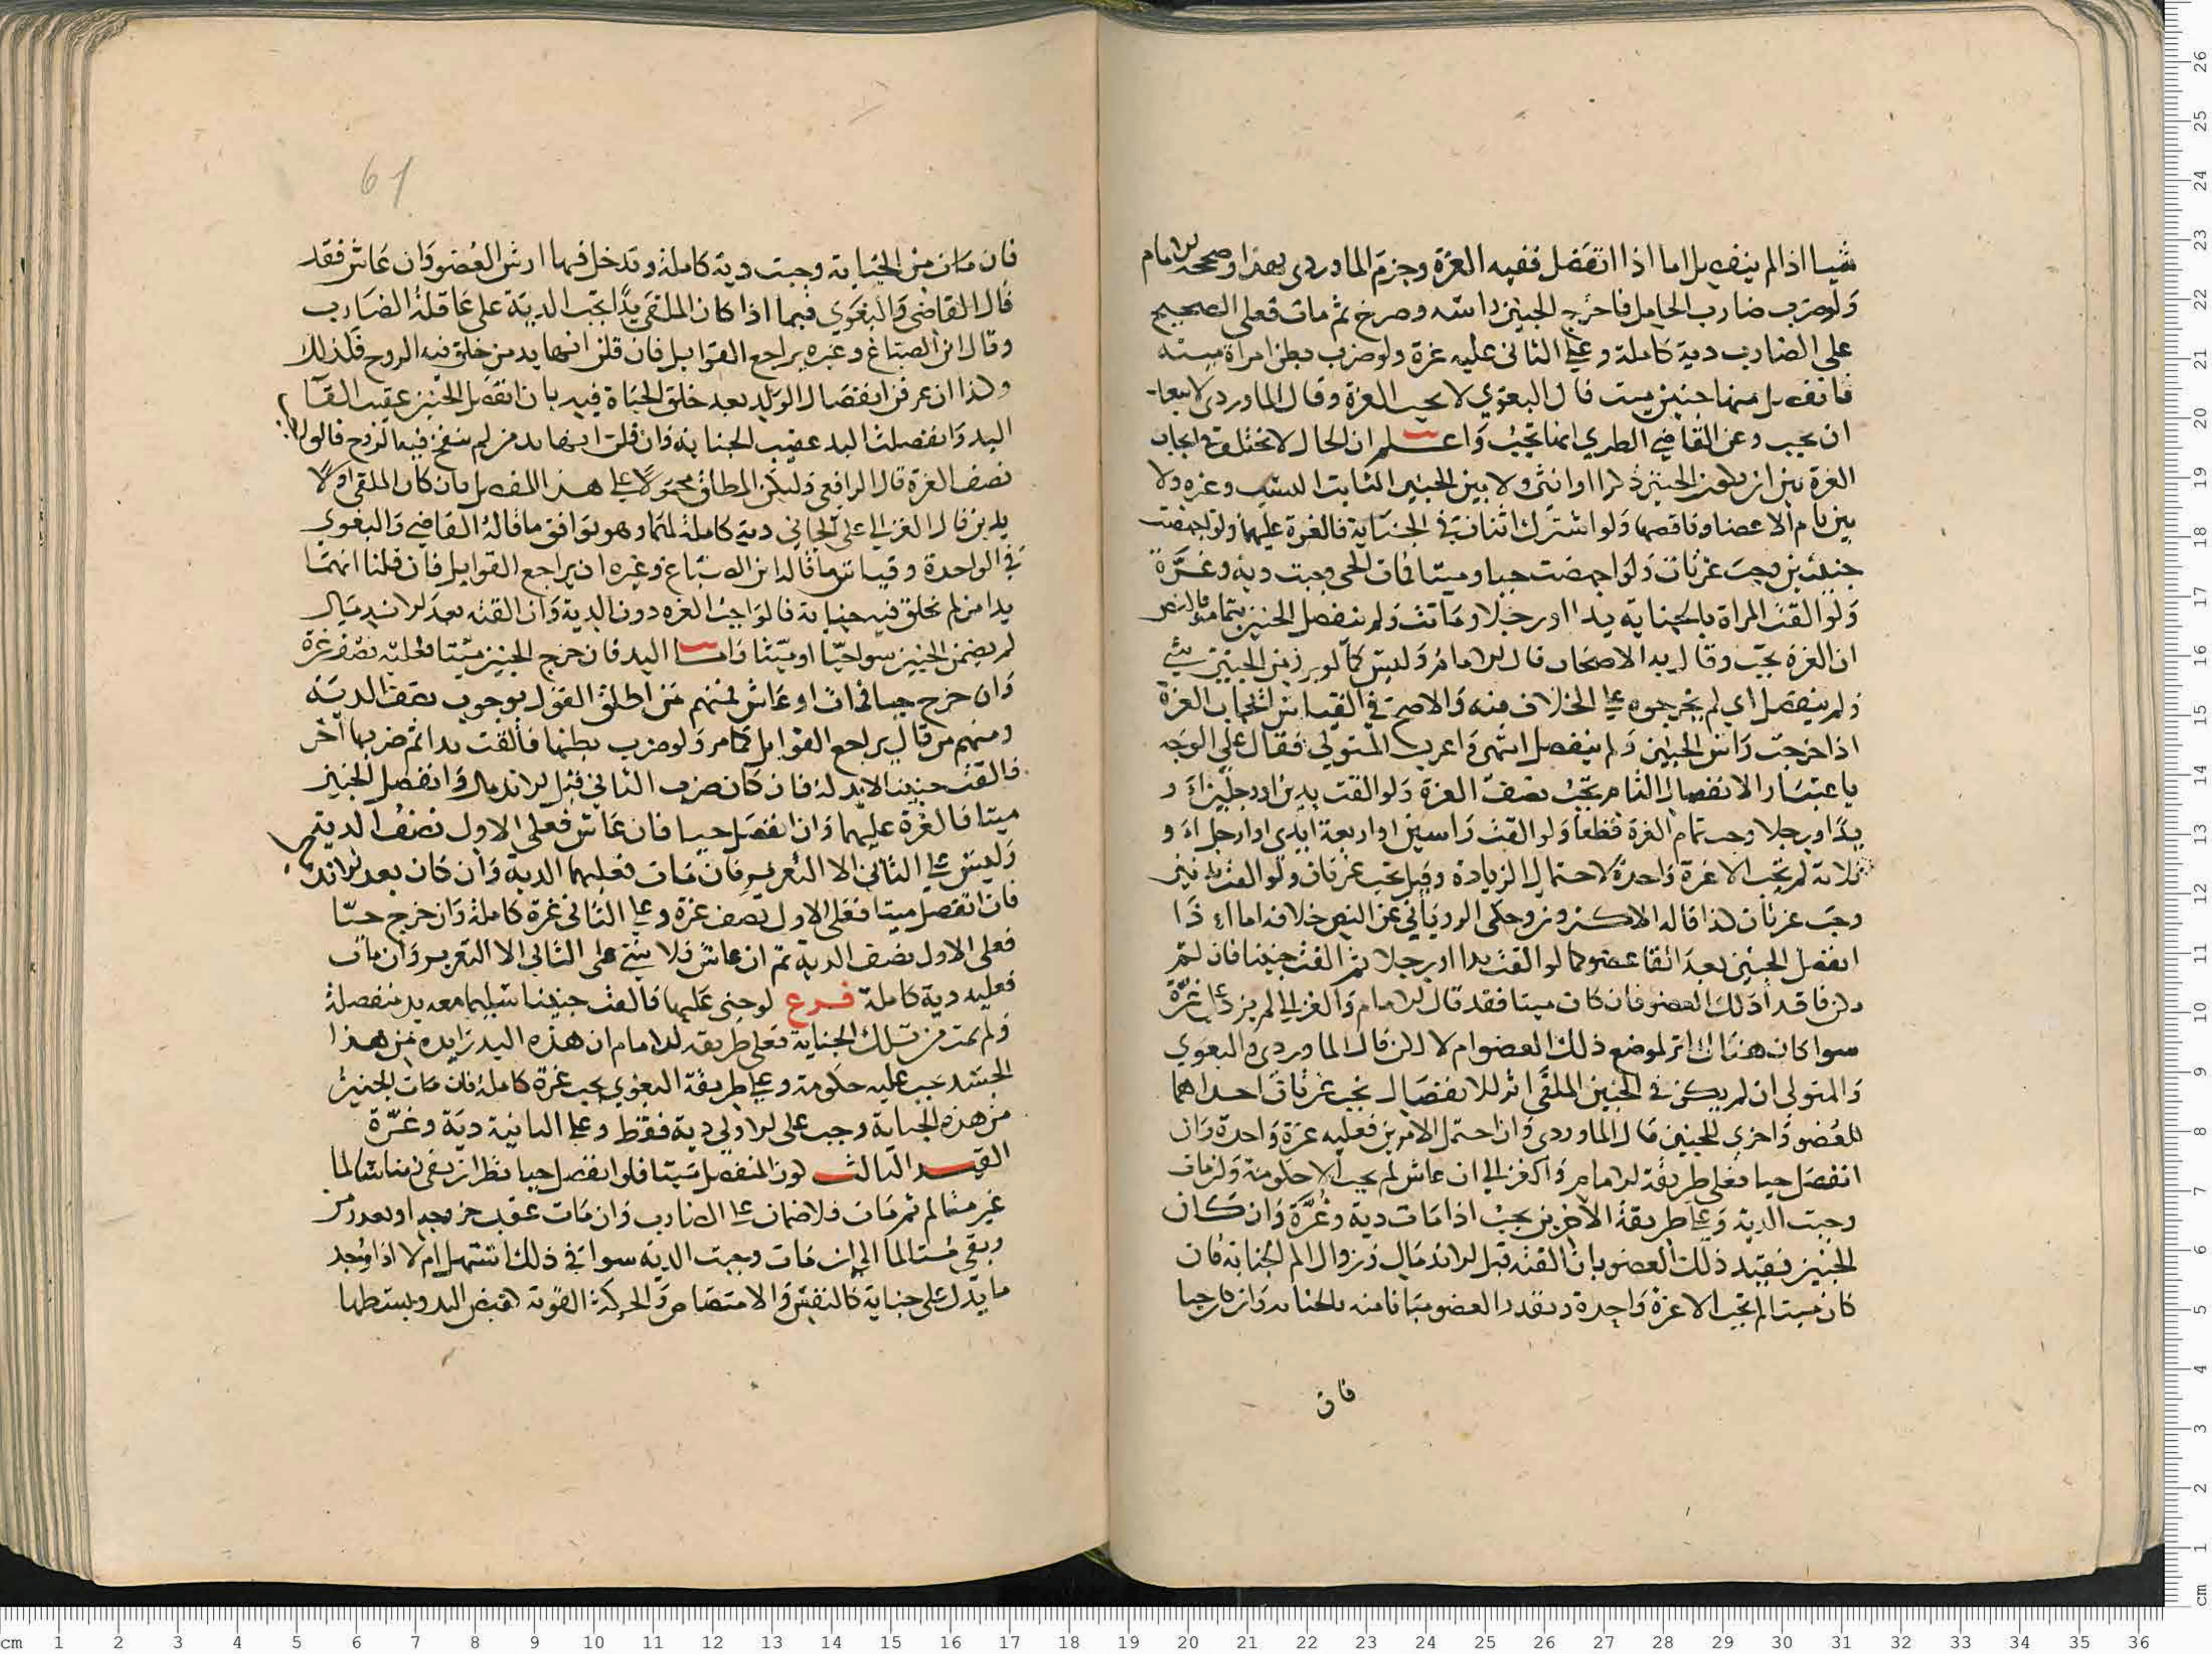 شيا اذا لم ينفصل اما اذا انفصل ففيه الغرة وجزم الماوردي بهذا وصححه الامام
ولو ضرب ضارب الحامل فاخرج الجنين راسه وصرخ ثم مات فعلى الصحيح
على الضارب دية كاملة وعلى الثاني عليه غرة ولو ضرب بطن امراة ميتة
فانفصل منها جنين ميت قال البغوي لا يجب الغرة وقال الماوردي
ان يجب وعن القاضي الطبري انها تجب واعلم ان الحال لا تختلف في ايجاب
الغرة بين ان يكون الجنين ذكرا او انثى ولا بين الجنين الثابت النسب وغيره ولا
بين تام الاعضا وناقصها ولو اشترك اثنان في الجناية فالغرة عليهما ولو اجهضت
جنينين وجبت غرتان ولو اجهضت حيا وميتا فمات الحي وجبت دية وغرة
ولو القت المراة بالجناية يدا او رجلا وماتت ولم ينفصل الجنين بتمامه
ان الغرة تجب وقال به الاصحاب قال الامام وليس كما لو برز من الجنين شي
ولم ينفصل اي لم يخرجوه على الخلاف فيه والاصح في القياس ايجاب الغرة
اذا خرجت راس الجنين ولم ينفصل انتهى واغرب المتولي فقال على الوجه
باعتبار الانفصال التام تجب نصف الغرة ولو القت يدين او رجلين او
يدا ورجلا وجب تمام الغرة قطعا ولو القت راسين او اربعة ايدي او ارجل او
ثلاثة لم تجب الا غرة واحدة لاحتمال الزيادة وقيل تجب غرتان ولو القت بدنين
وجب غرتان كذا قاله الاكثرون وحكى الروياني عن النص خلافه اما اذا
انفصل الجنين بعد القا عضو كما لو القت يدا او رجلا ثم القت جنينا فان لم
يكن فاقد ذلك العضو فان كان ميتا فقد قال الامام والغزالي لم يزد على غرة
سوا كان هناك اثر لموضع ذلك العضو ام لا لكن قال الماوردي والبغوي
والمتولي ان لم يكن في الجنين الملقى اثر للانفصال تجب غرتان احداهما
للعضو واخرى للجنين قال الماوردي وان احتمل الامرين فعليه غرة واحدة وان
انفصل حيا فعلى طريقة الامام والغزالي ان عاش لم يجب الا حكومة وان مات
وجبت الدية وعلى طريقة الاخرين يجب اذا مات دية وغرة وان كان
الجنين فقيد ذلك العضو بان القته قبل الاندمال وزوال الم الجناية فان
كان ميتا لم تجب الا غرة واحدة ويقدر العضو مبانا منه بالجناية وان كان حيا
فان
61
فان مات من الجناية وجبت دية كاملة وتدخل فيها ارش العضو وان عاش فقد
قال القاضي والبغوي فيما اذا كان الملقى يدا تجب الدية على عاقلة الضارب
وقال ابن الصباغ وغيره يراجع القوابل فان قلن انها يد من خلق فيه الروح فكذلك
وكذا ان عرف انفصال الولد بعد خلق الحياة فيه بان انفصل الجنين عقيب القا
اليد وانفصلت اليد عقيب الجناية وان قلن انها يد من لم ينفخ فيه الروح فالواجب
نصف الغرة قال الرافعي وليكن المطلق محمولا على هذا المفصل فان كان الملقى اولا
يدين قال الغزالي على الجاني دية كاملة لهما وهو يوافق ما قاله القاضي والبغوي
في الواحدة وقياس ما قاله ابن الصباغ وغيره ان يراجع القوابل فان قلنا انهما
يدا من لم تخلق فيه حياة فالواجب الغرة دون الدية وان القته بعد الاندمال
لم يضمن الجنين سوا حيا او ميتا واما اليد فان خرج الجنين ميتا فعليه نصف غرة
وان خرج حيا فمات او عاش فمنهم من اطلق القول بوجوب نصف الدية
ومنهم من قال يراجع القوابل كما مر ولو ضرب بطنها فالقت يدا ثم ضربها اخر
فالقت جنينا لا يد له فان كان ضرب الثاني قبل الاندمال وانفصل الجنين
ميتا فالغرة عليهما وان انفصل حيا فان عاش فعلى الاول نصف الدية
وليس على الثاني الا التعزير فان مات فعليهما الدية وان كان بعد الاندمال
فان انفصل ميتا فعلى الاول نصف غرة وعلى الثاني غرة كاملة وان خرج حيا
فعلى الاول نصف الدية ثم ان عاش فلا شي على الثاني الا التعزير وان مات
فعليه دية كاملة فرع لو جنى عليها فالقت جنينا سليما معه يد منفصلة
ولم تمت من تلك الجناية فعلى طريقة الامام ان هذه اليد زايدة من هذا
الجسد تجب عليه حكومة وعلى طريقة البغوي يجب غرة كاملة فان مات الجنين
من هذه الجناية وجب على الاولى دية فقط وعلى الثانية دية وغرة
القيد الثالث كون المنفصل ميتا فلو انفصل حيا نظر ان بقى زمنا سالما
غير متالم ثم مات فلا ضمان على الضارب وان مات عقب خروجه او بعد زمن
وبقي متالما الى ان مات وجبت الدية سوا في ذلك استهل ام لا اذا وجد
ما يدل على حياته كالنفس والامتصاص والحركة القوية كقبض اليد وبسطها